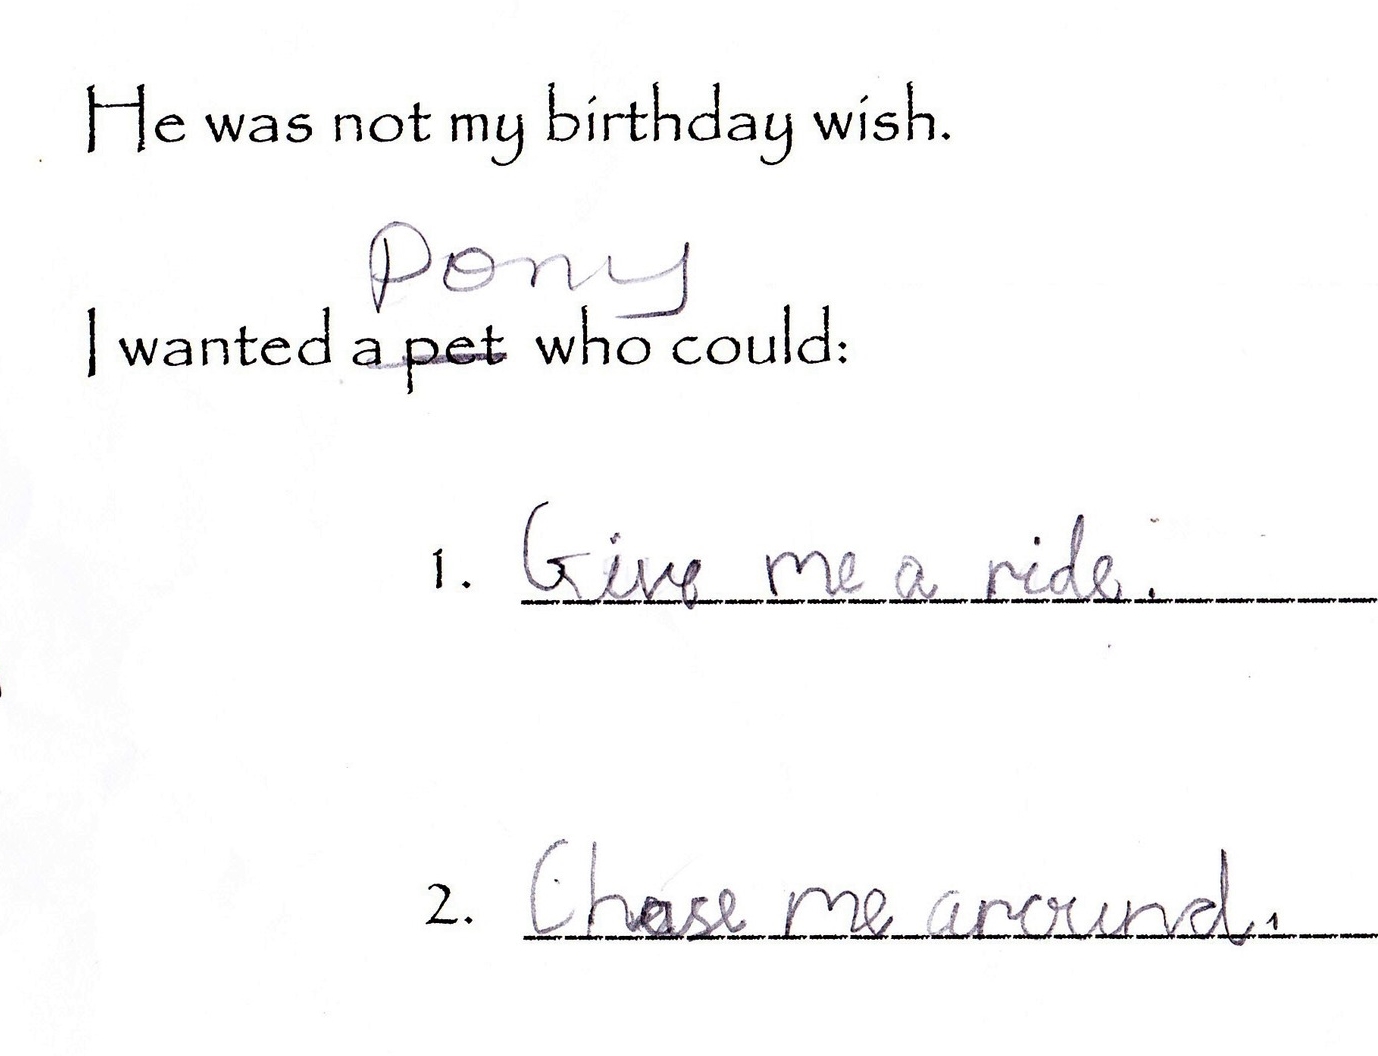 He was not my birthday wish.
Pony
I wanted a pet who could:
1. Give me a ride.
2. Chase me around.